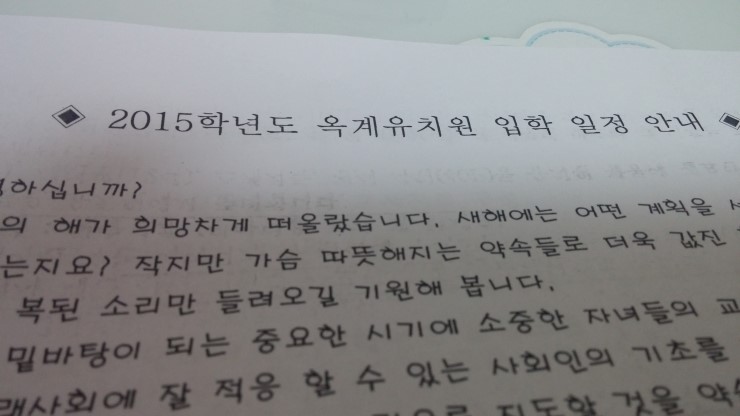 ◈ 2015학년도 옥계유치원 입학 일정 안내 ◈
하십니까?
의 해가 희망차게 떠올랐습니다. 새해에는 어떤 계획을
는지요? 작지만 가슴 따뜻해지는 약속들로 더욱 값진
복된 소리만 들려오길 기원해 봅니다.
밑바탕이 되는 중요한 시기에 소중한 자녀들의 교
사회에 잘 적응 할 수 있는 사회인의 기초를
지도할 것을 약속